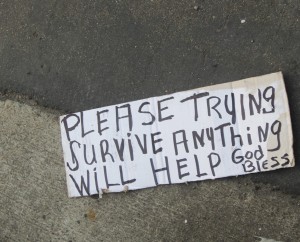 PLEASE TRYING
SURVIVE ANYTHING
WILL HELP God
BLESS